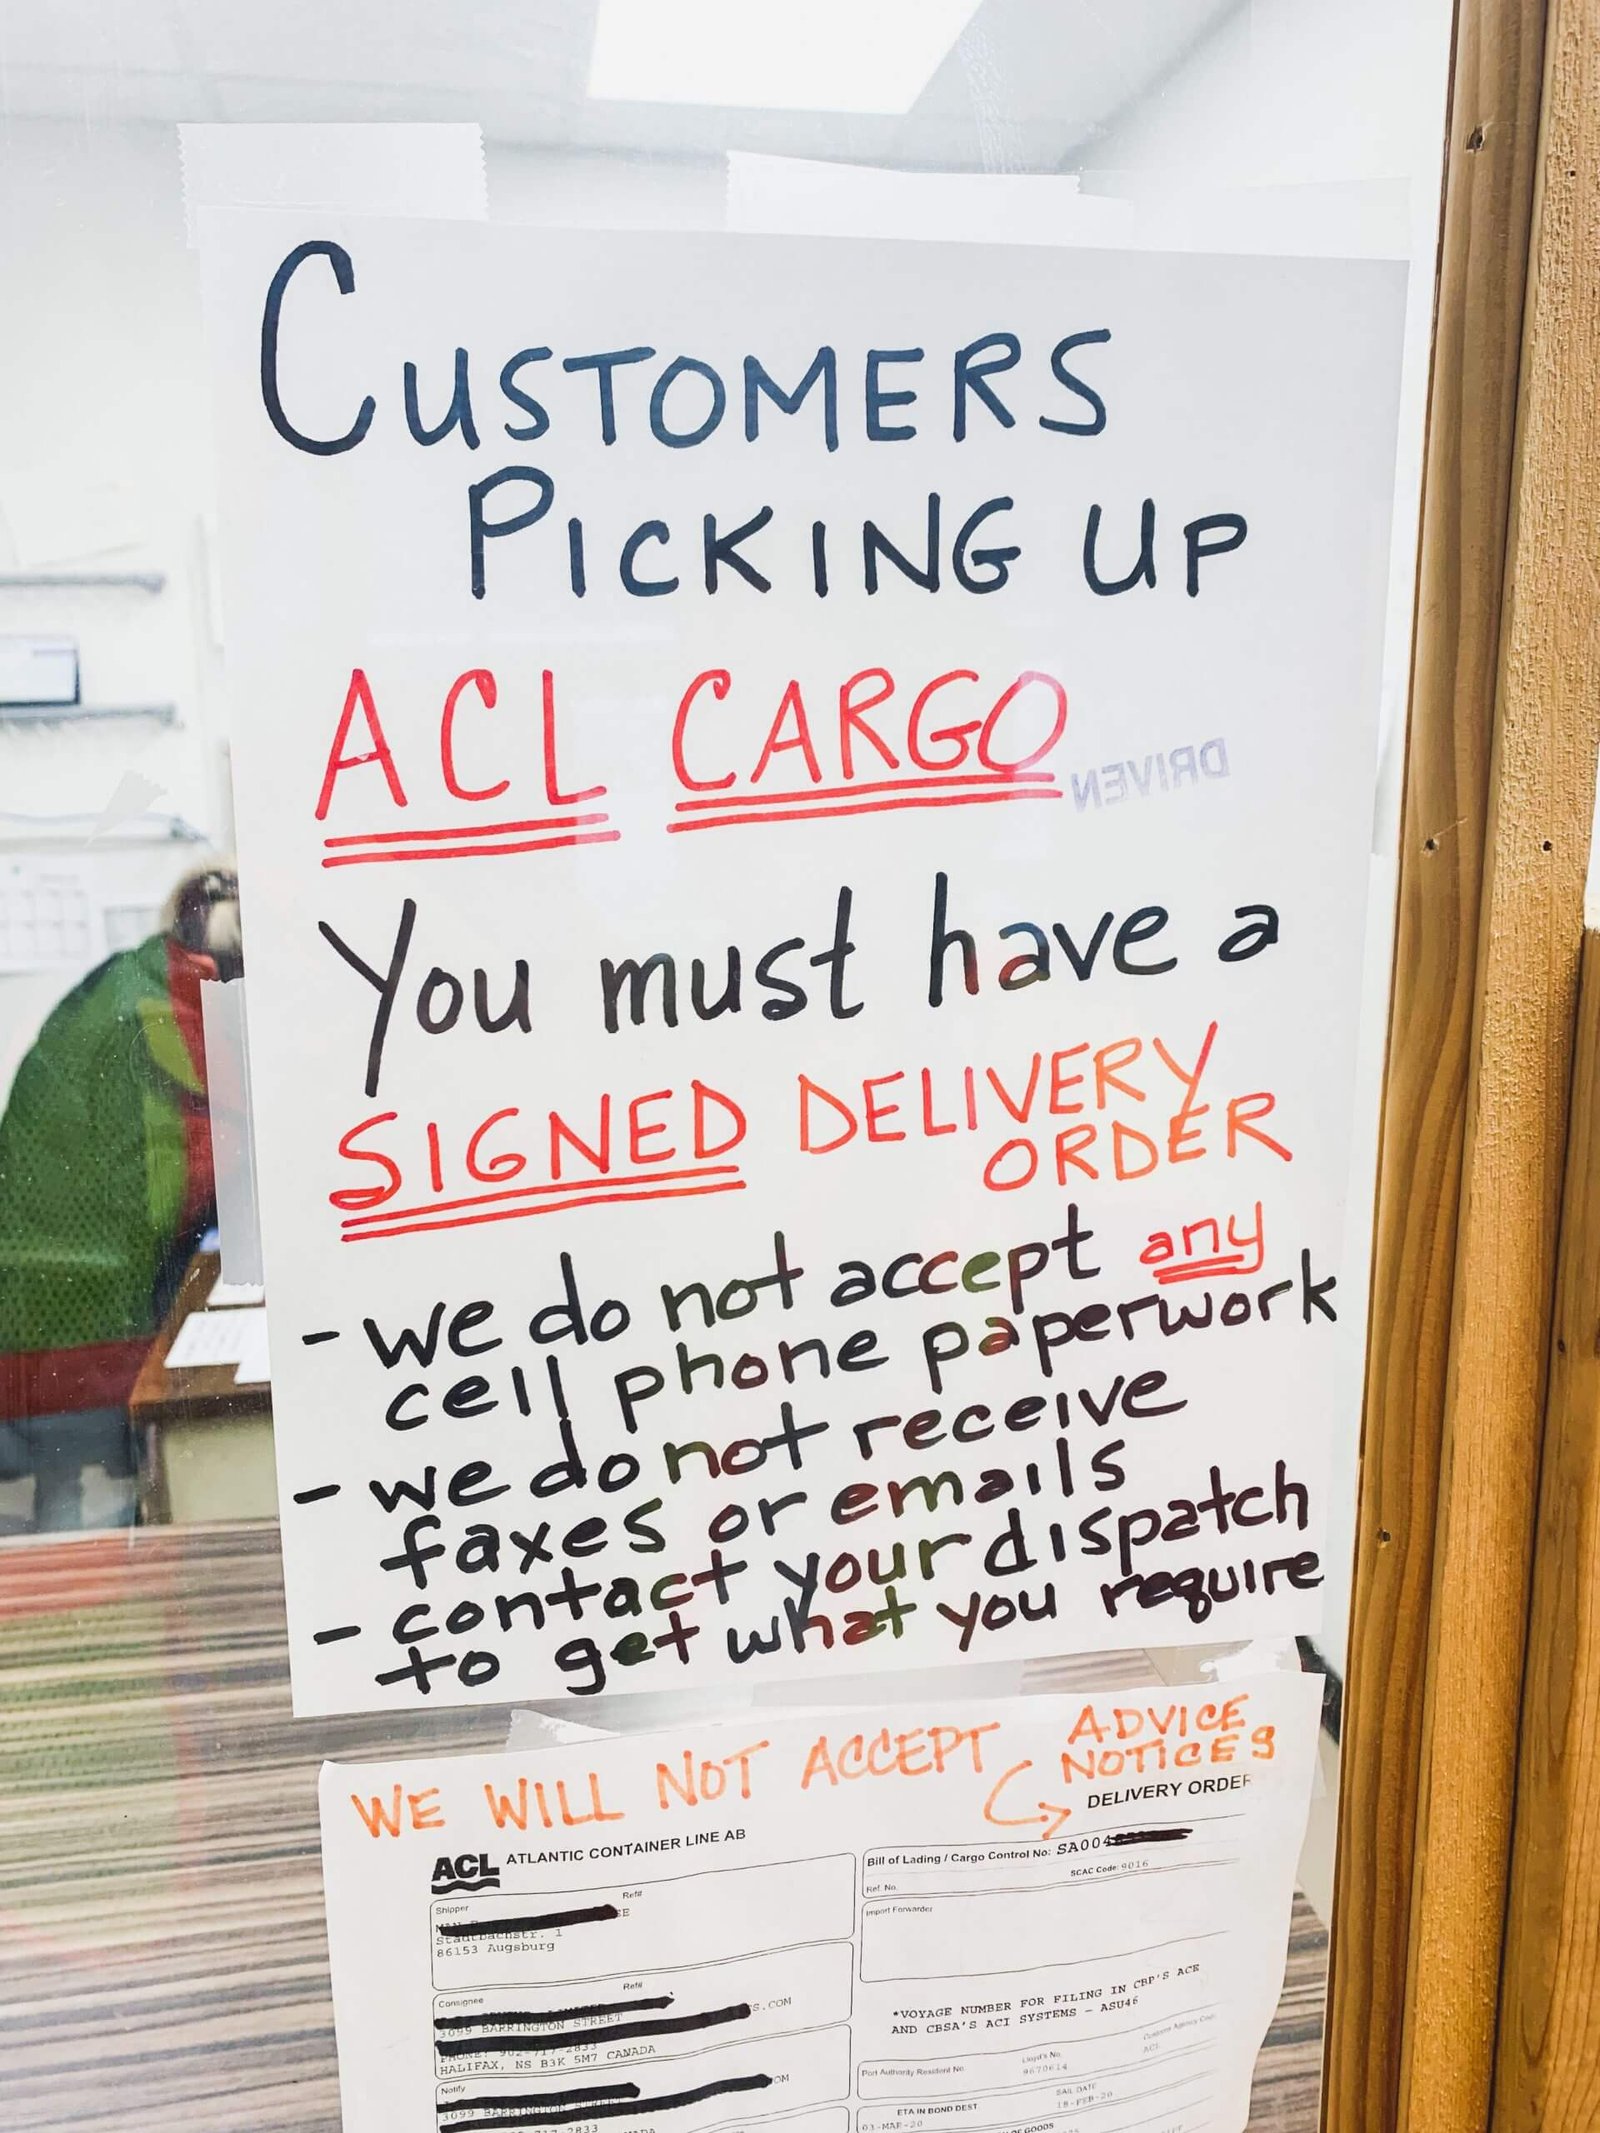 CUSTOMERS
PICKING UP
ACL CARGO
DRIVEN
You must have a
SIGNED DELIVERY
ORDER
- we do not accept any
cell phone paperwork
- we do not receive
faxes or emails
- contact your dispatch
to get what you require
WE WILL NOT ACCEPT
ADVICE
NOTICES
DELIVERY ORDER
ACL ATLANTIC CONTAINER LINE AB
Bill of Lading / Cargo Control No: SA004
SCAC Code: 9016
Ref. No.
Shipper
Ref#
Stadtbachstr. 1
86153 Augsburg
Import Forwarder
Consignee
Ref#
S.COM
3099 BARRINGTON STREET
PHONE: 902-717-2833
HALIFAX, NS B3K 5M7 CANADA
*VOYAGE NUMBER FOR FILING IN CBP'S ACE
AND CBSA'S ACI SYSTEMS - ASU46
Port Authority Resident No.
Lloyd's No.
9670614
Customs Agency Code
ACL
Notify
OM
3099 BARRINGTON STREET
717-2833
ETA IN BOND DEST
03-MAR-20
SAIL DATE
18-FEB-20
OF GOODS